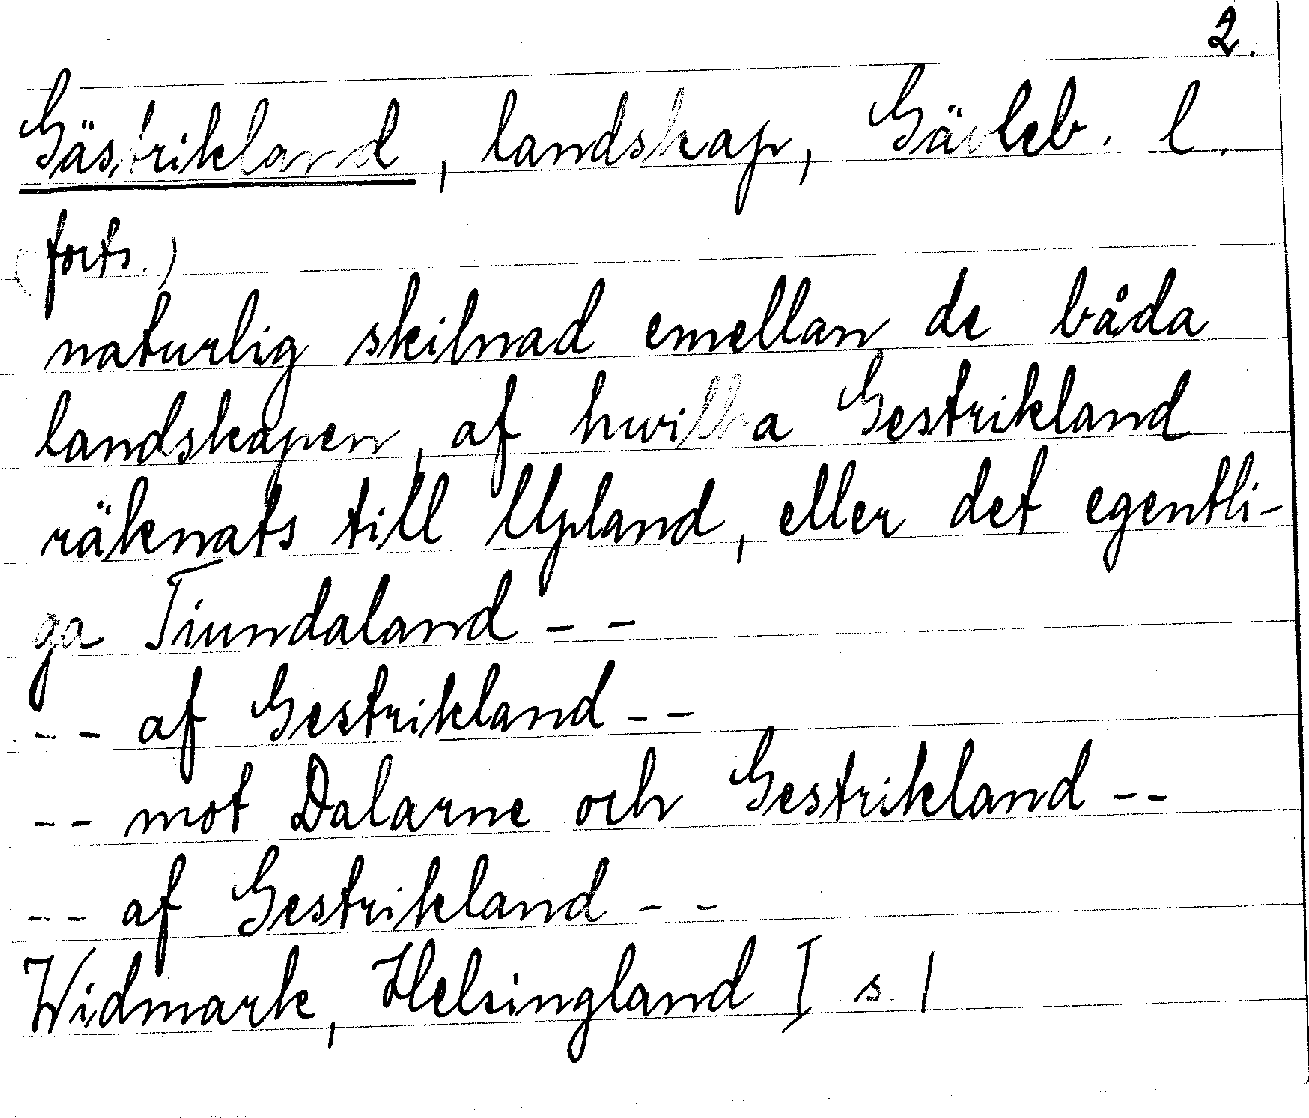 2.
Gästrikland, landskap, Gävleb. l.
(forts.)
naturlig skilnad emellan de båda
landskapen, af hwilka Gestrikland
räknats till Upland, eller det egentli-
ga Tiundaland - -
- - af Gestrikland - -
- - mot Dalarne och Gestrikland - -
- - af Gestrikland - -
Widmark, Helsingland I s. 1